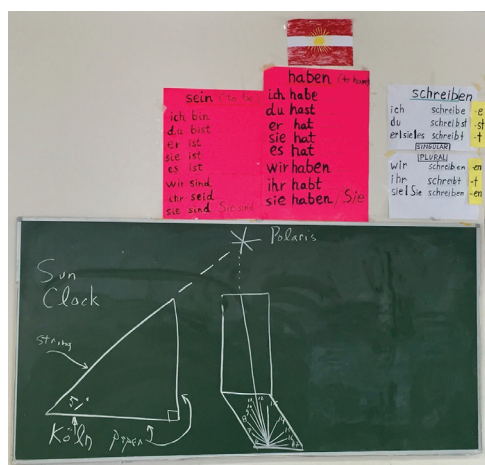 sein (to be)
ich bin
du bist
er ist
sie ist
es ist
wir sind
ihr seid
sie sind Sie sind
haben (to have)
ich habe
du hast
er hat
sie hat
es hat
wir haben
ihr habt
sie haben, Sie
schreiben
ich schreibe -e
du schreibst -st
er|sie|es schreibt -t
SINGULAR
PLURAL
wir schreiben -en
ihr schreibt -t
sie|Sie schreiben -en
Polaris
Sun
Clock
string
Köln
paper